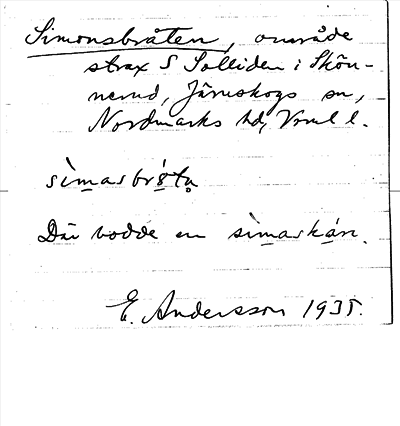 Simonsbråten, område
strax S Solliden i Skön-
nerud, Järnskogs sn,
Nordmarks hd, Vrml l.
sìmasbrǿ́ta
Där bodde en sìmaskán.
E. Andersson 1935.